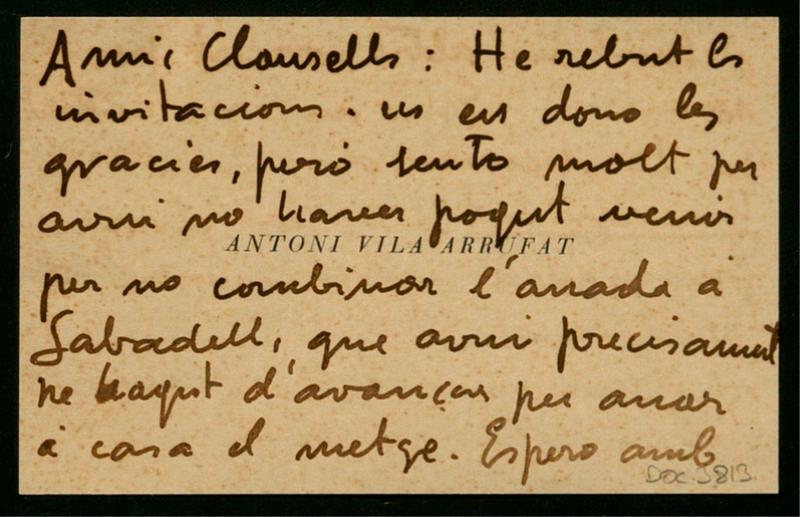 Amic Clausells: He rebut les
invitacions. us en dono les
gracies, peró sento molt per
avui no haver pogut venir
ANTONI VILA ARRUFAT
per no combinar l'anada a
Sabadell, que avui precisament
he hagut d'avançar per anar
a casa el metge. Espero amb
DOC. 3813